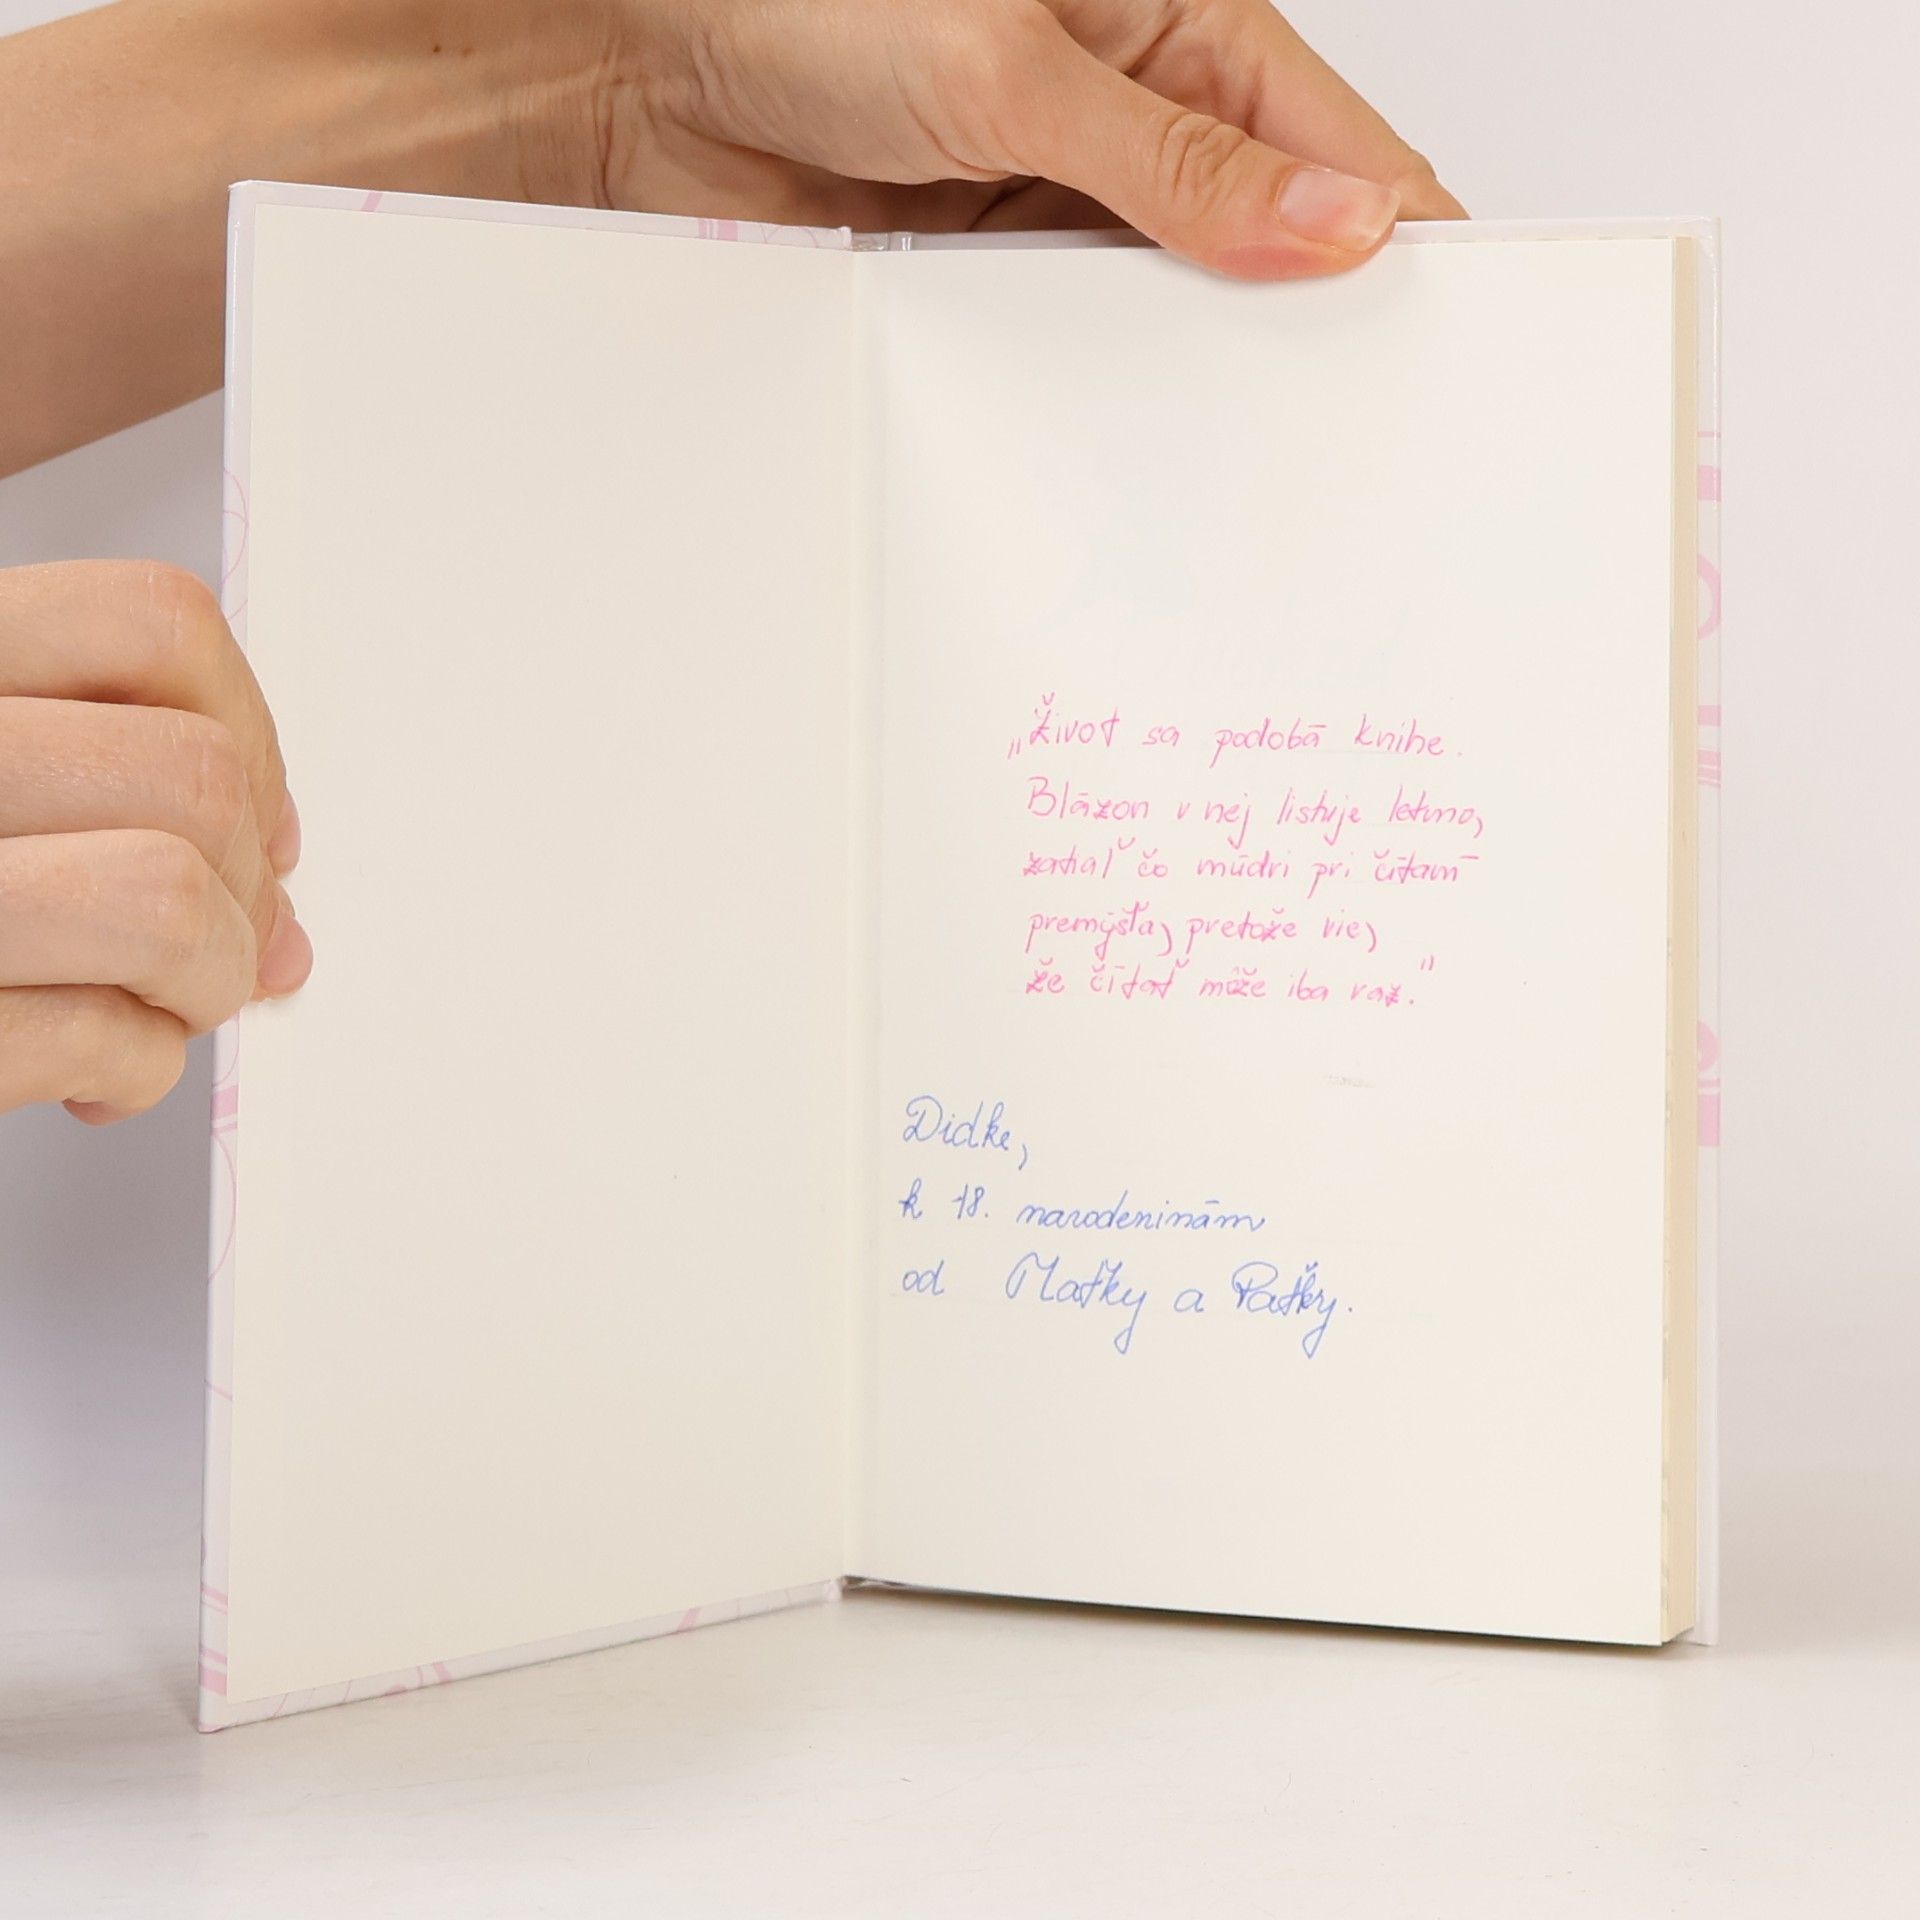 „Život sa podobá knihe.
Blázon v nej listuje letmo,
zatiaľ čo múdri pri čítaní
premýšľa, pretože vie,
že čítať môže iba raz."
Didke,
k 18. narodeninám
od Maťky a Paťky.